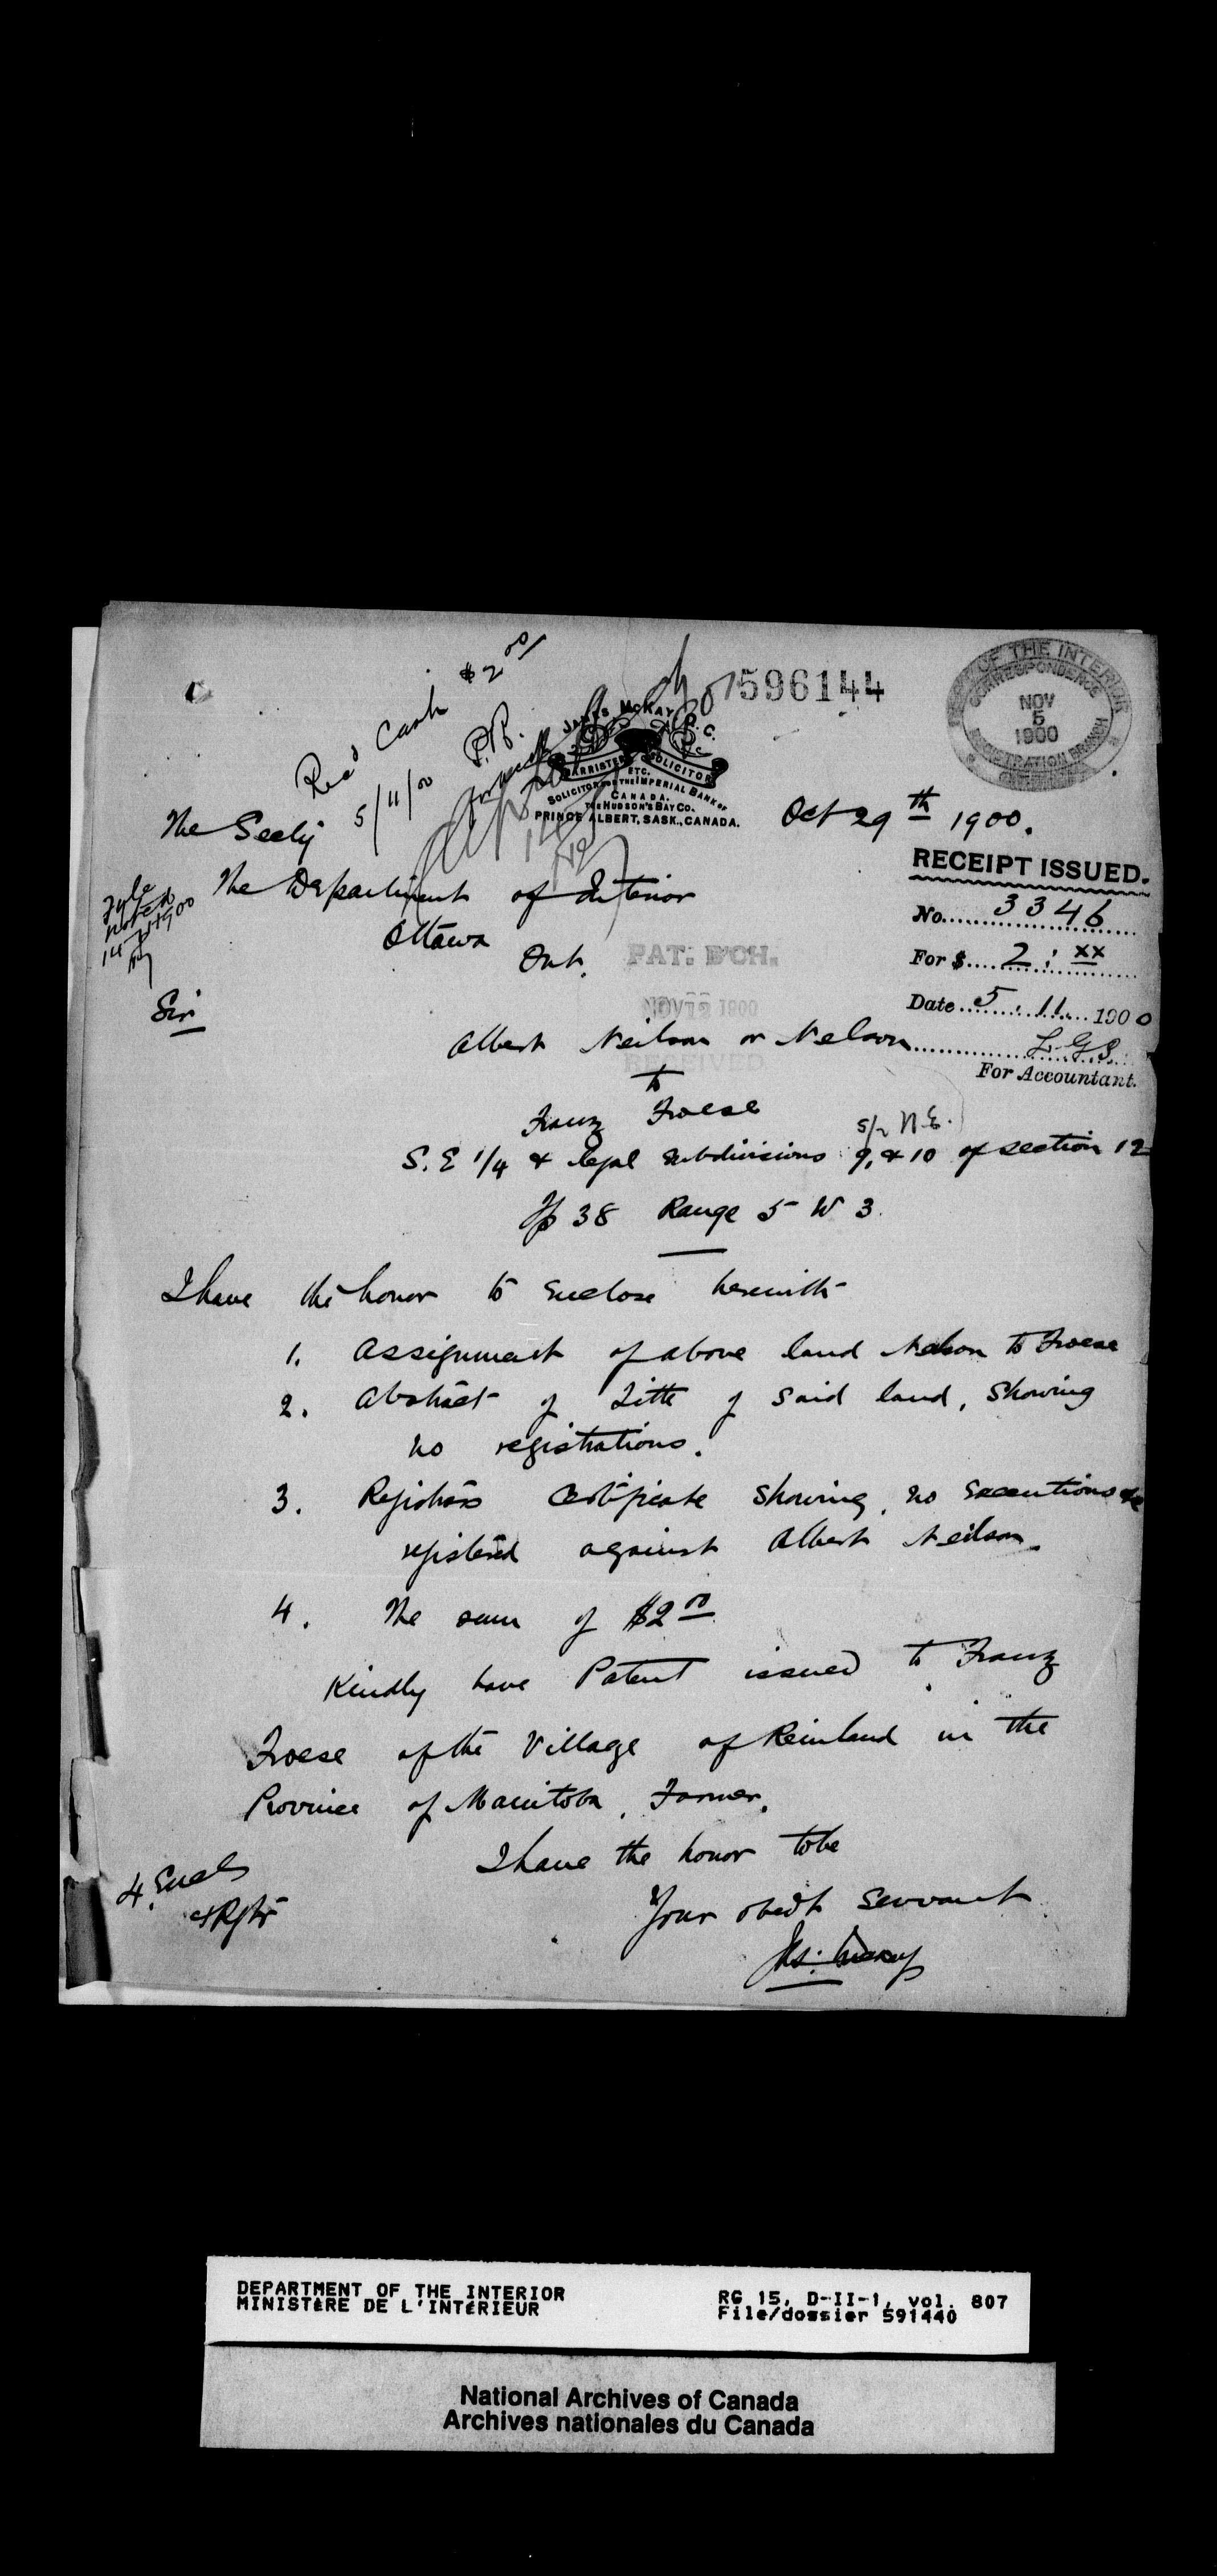 Rec'd Cash $2 00/
5/11/00 P.B.
596144
DEPT OF THE INTERIOR
CORRESPONDENCE
NOV
5
1900
REGISTRATION BRANCH
JAMES MCKAY, Q.C.
BARRISTER SOLICITOR
ETC.
SOLICITOR FOR THE IMPERIAL BANK OF
CANADA.
THE HUDSON'S BAY CO.
PRINCE ALBERT, SASK., CANADA.
Oct 29th 1900.
The Secty
The Department of Interior
Ottawa
Ont.
RECEIPT ISSUED.
No. 3346
For $ 2 : xx
Date 5. 11. 1900
L.G.S.
For Accountant.
Fyle
noted
PAT. B'CH.
NOV 12 1900
RECEIVED
Sir
Albert Neilson or Nelson
to
Franz Froese
s/2 N.E.
S.E 1/4 & legal subdivisions 9, & 10 of section 12
Tp 38 Range 5 W 3.
I have the honor to enclose herewith
1. Assignment of above land Nelson to Froese
2. Abstract of Title of said land, showing
no registrations.
3. Registrars Certificate showing no Executions &c
registered against Albert Neilson.
4. The sum of $2 00
Kindly have Patent issued to Franz
Froese of the Village of Reinland in the
Province of Manitoba, Farmer.
I have the honor to be
Your obedt Servant
Jas. McKay
4 Encls
DEPARTMENT OF THE INTERIOR
MINISTÈRE DE L'INTÉRIEUR
RG 15, D-II-1, vol. 807
File/dossier 591440
National Archives of Canada
Archives nationales du Canada